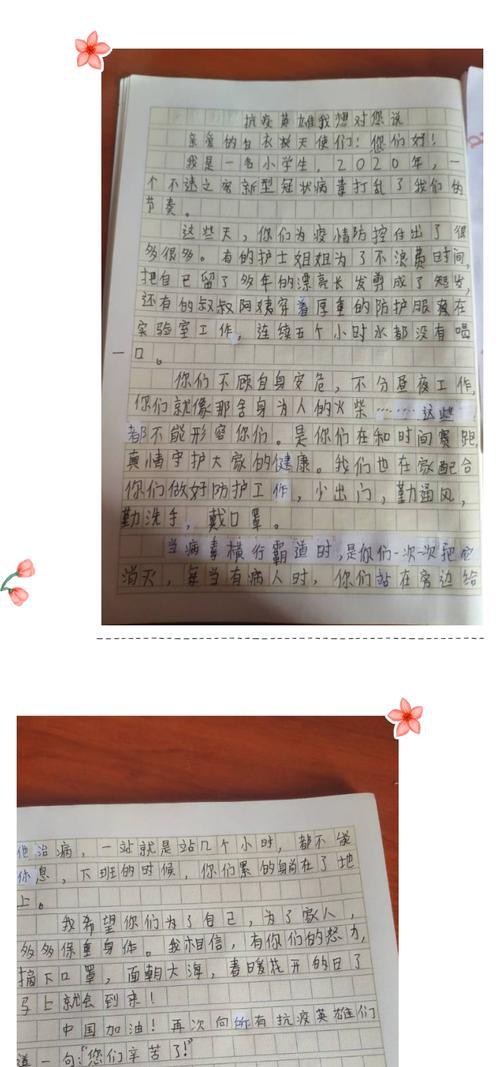 抗疫英雄我想对你说
亲爱的白衣天使们：你们好！
我是一名小学生，2020年，一
个不速之客新型冠状病毒打乱了我们的
节奏。
这些天，你们为疫情防控付出了很
多很多。有的护士姐姐为了不浪费时间，
把自己留了多年的漂亮长发剪成了短发，
还有的叔叔阿姨穿着厚重的防护服在
实验室工作，连续五个小时水都没有喝
一口。
你们不顾自身安危，不分昼夜工作，
你们就像那舍身为人的火柴……这些
都不能形容你们。是你们在和时间赛跑
真情守护大家的健康。我们也在家配合
你们做好防护工作，少出门，勤通风，
勤洗手，戴口罩。
当病毒横行霸道时，是你们一次一次把它
消灭，每当有病人时，你们站在旁边给
他治病，一站就是站几个小时，都不能
休息，下班的时候，你们累的躺在了地
上。
我希望你们为了自己，为了家人，
多多保重身体。我相信，有你们的努力，
摘下口罩，面朝大海，春暖花开的日子
马上就会到来！
中国加油！再次向所有抗疫英雄们
道一句："您们辛苦了！"